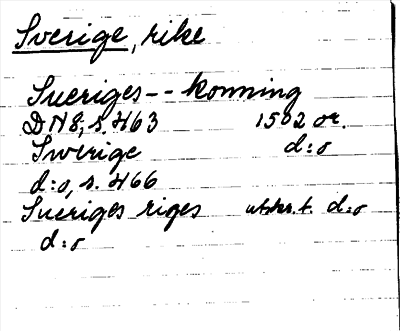 Sverige, rike
Sueriges -- konning
DN 8, s. 463 1502 or.
Swerige d:o
d:o, s. 466
Sueriges riges utskr. t. d:o
d:o